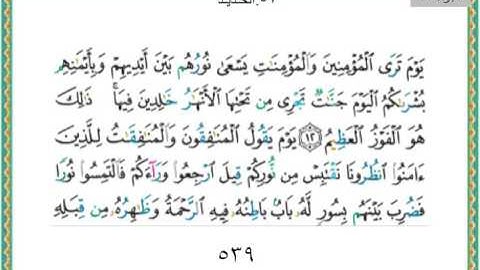 ٥٧.الحديد
يَوْمَ تَرَى ٱلْمُؤْمِنِينَ وَٱلْمُؤْمِنَٰتِ يَسْعَىٰ نُورُهُم بَيْنَ أَيْدِيهِمْ وَبِأَيْمَٰنِهِم
بُشْرَىٰكُمُ ٱلْيَوْمَ جَنَّٰتٌ تَجْرِى مِن تَحْتِهَا ٱلْأَنْهَٰرُ خَٰلِدِينَ فِيهَا ۚ ذَٰلِكَ
هُوَ ٱلْفَوْزُ ٱلْعَظِيمُ ۝١٢ يَوْمَ يَقُولُ ٱلْمُنَٰفِقُونَ وَٱلْمُنَٰفِقَٰتُ لِلَّذِينَ
ءَامَنُوا۟ ٱنظُرُونَا نَقْتَبِسْ مِن نُّورِكُمْ قِيلَ ٱرْجِعُوا۟ وَرَآءَكُمْ فَٱلْتَمِسُوا۟ نُورًا
فَضُرِبَ بَيْنَهُم بِسُورٍ لَّهُۥ بَابٌۢ بَاطِنُهُۥ فِيهِ ٱلرَّحْمَةُ وَظَٰهِرُهُۥ مِن قِبَلِهِ
٥٣٩